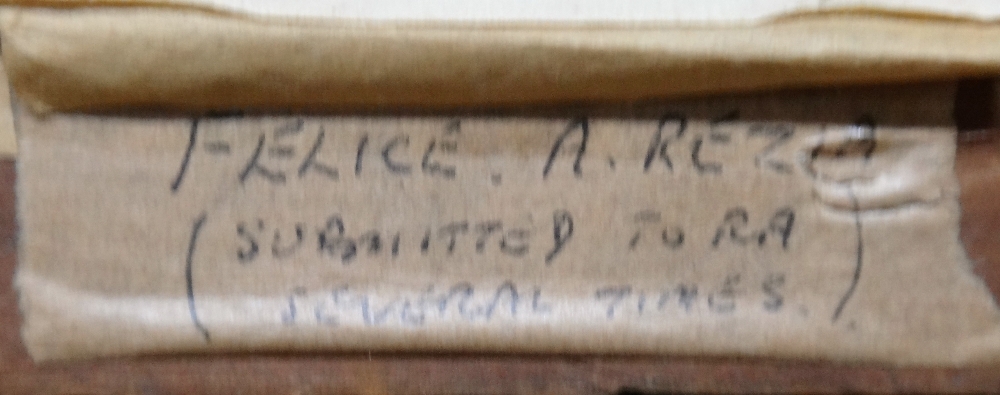 FELICE. A. REZIA
(SUBMITTED TO RA
SEVERAL TIMES.)